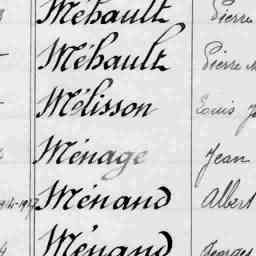 Méhault Pierre
Méhault Pierre
Mélisson Louis
Ménage Jean
Ménand Albert
Ménand Georges